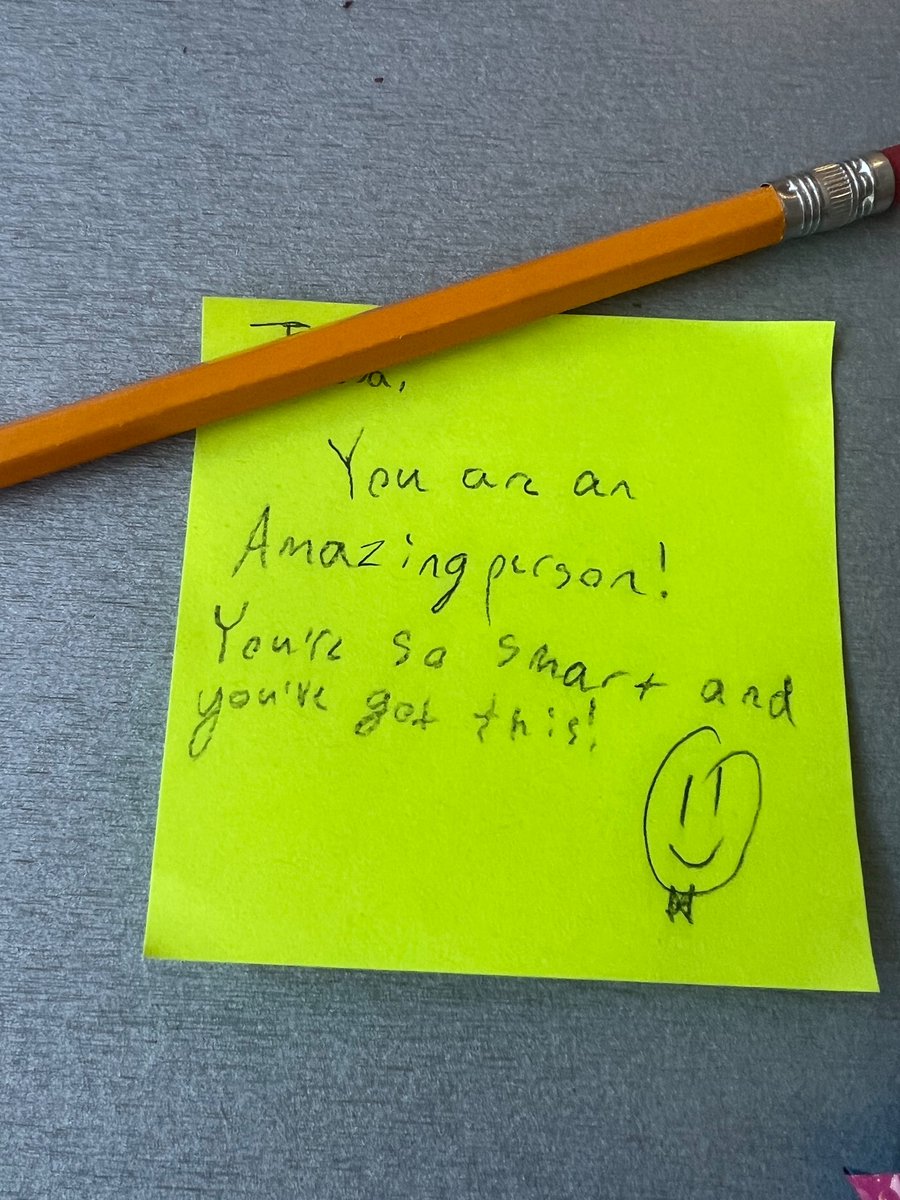 You are an
Amazing person!
You're so smart and
you've got this!